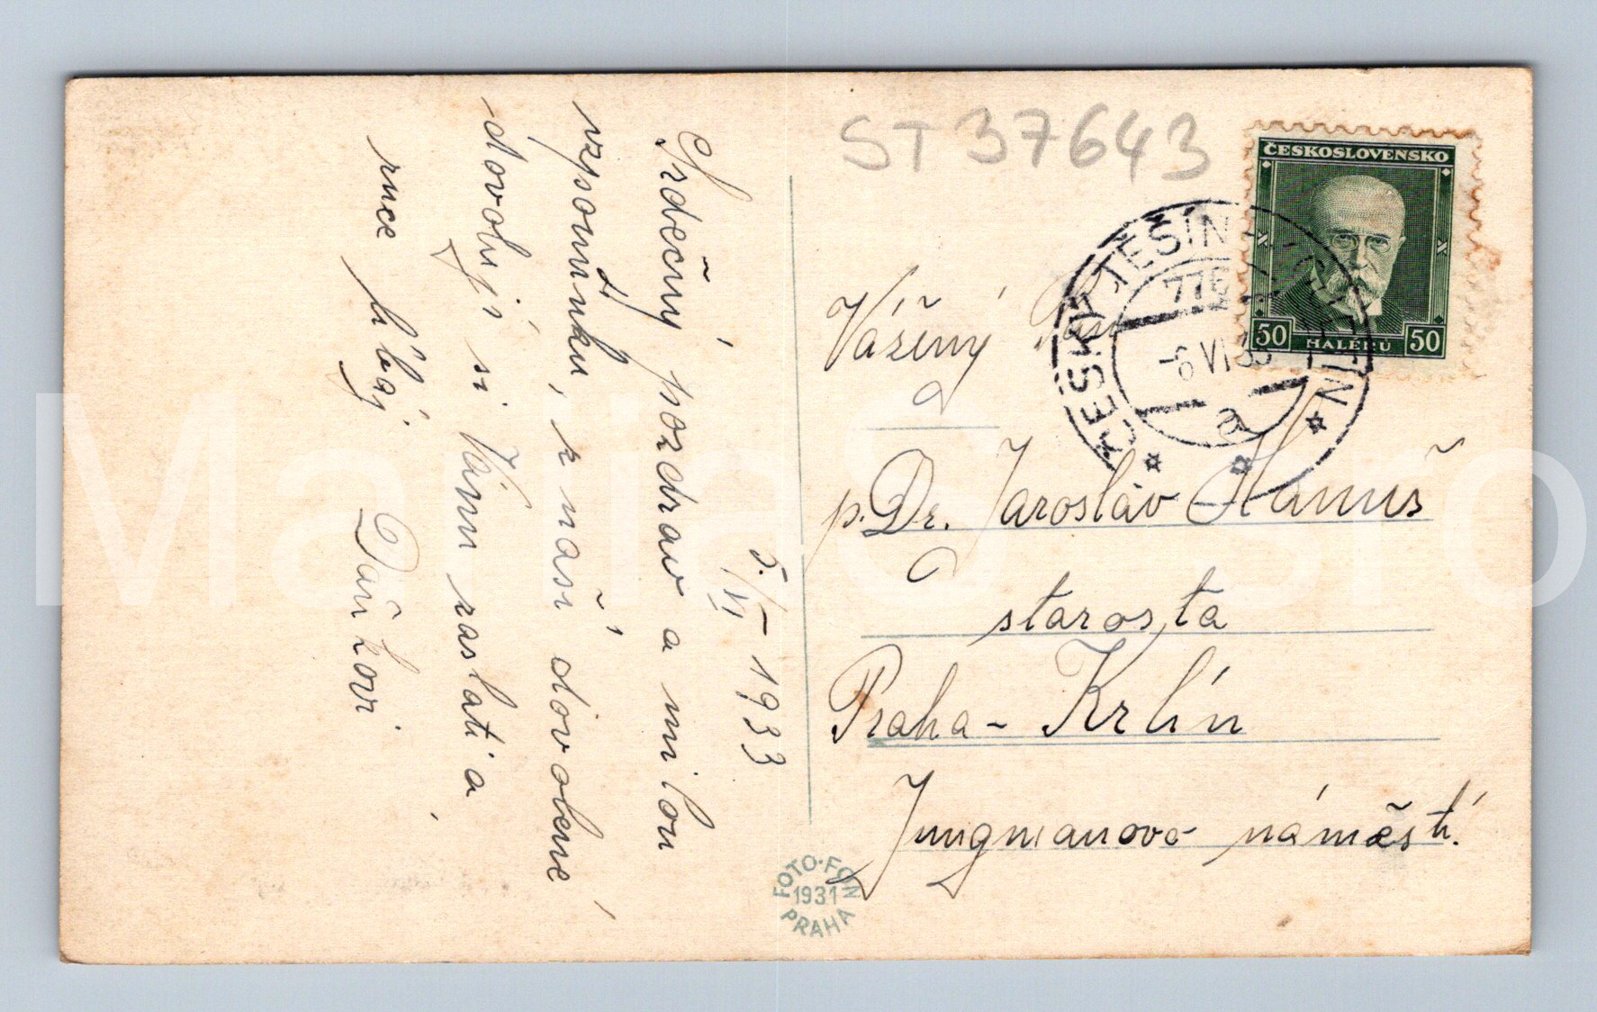 ST 37643
ČESKOSLOVENSKO
50 HALÉŘŮ 50
ČESKÝ TĚŠÍN
-6 VI 33
a
Vážený Pan
p. Dr. Jaroslav Hanuš
starosta
Praha - Krlín
Jungmanovo náměstí.
5./VI - 1933
Srdečný pozdrav a milou
vzpomínku, z naší dovolené
dovoluji si Vám zaslati a
ruce líbaj
FOTO-FON
1931
PRAHA